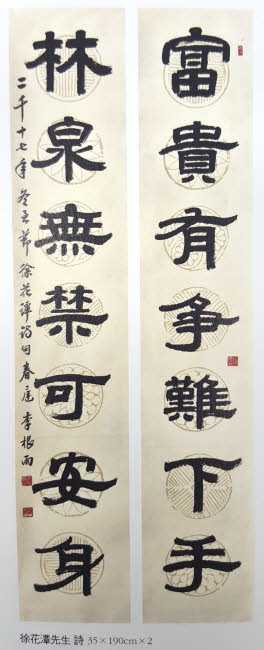 富貴有爭難下手
林泉無禁可安身
二千十七年冬至節徐花潭詩句春庭李根雨
徐花潭先生 詩 35×190cm×2